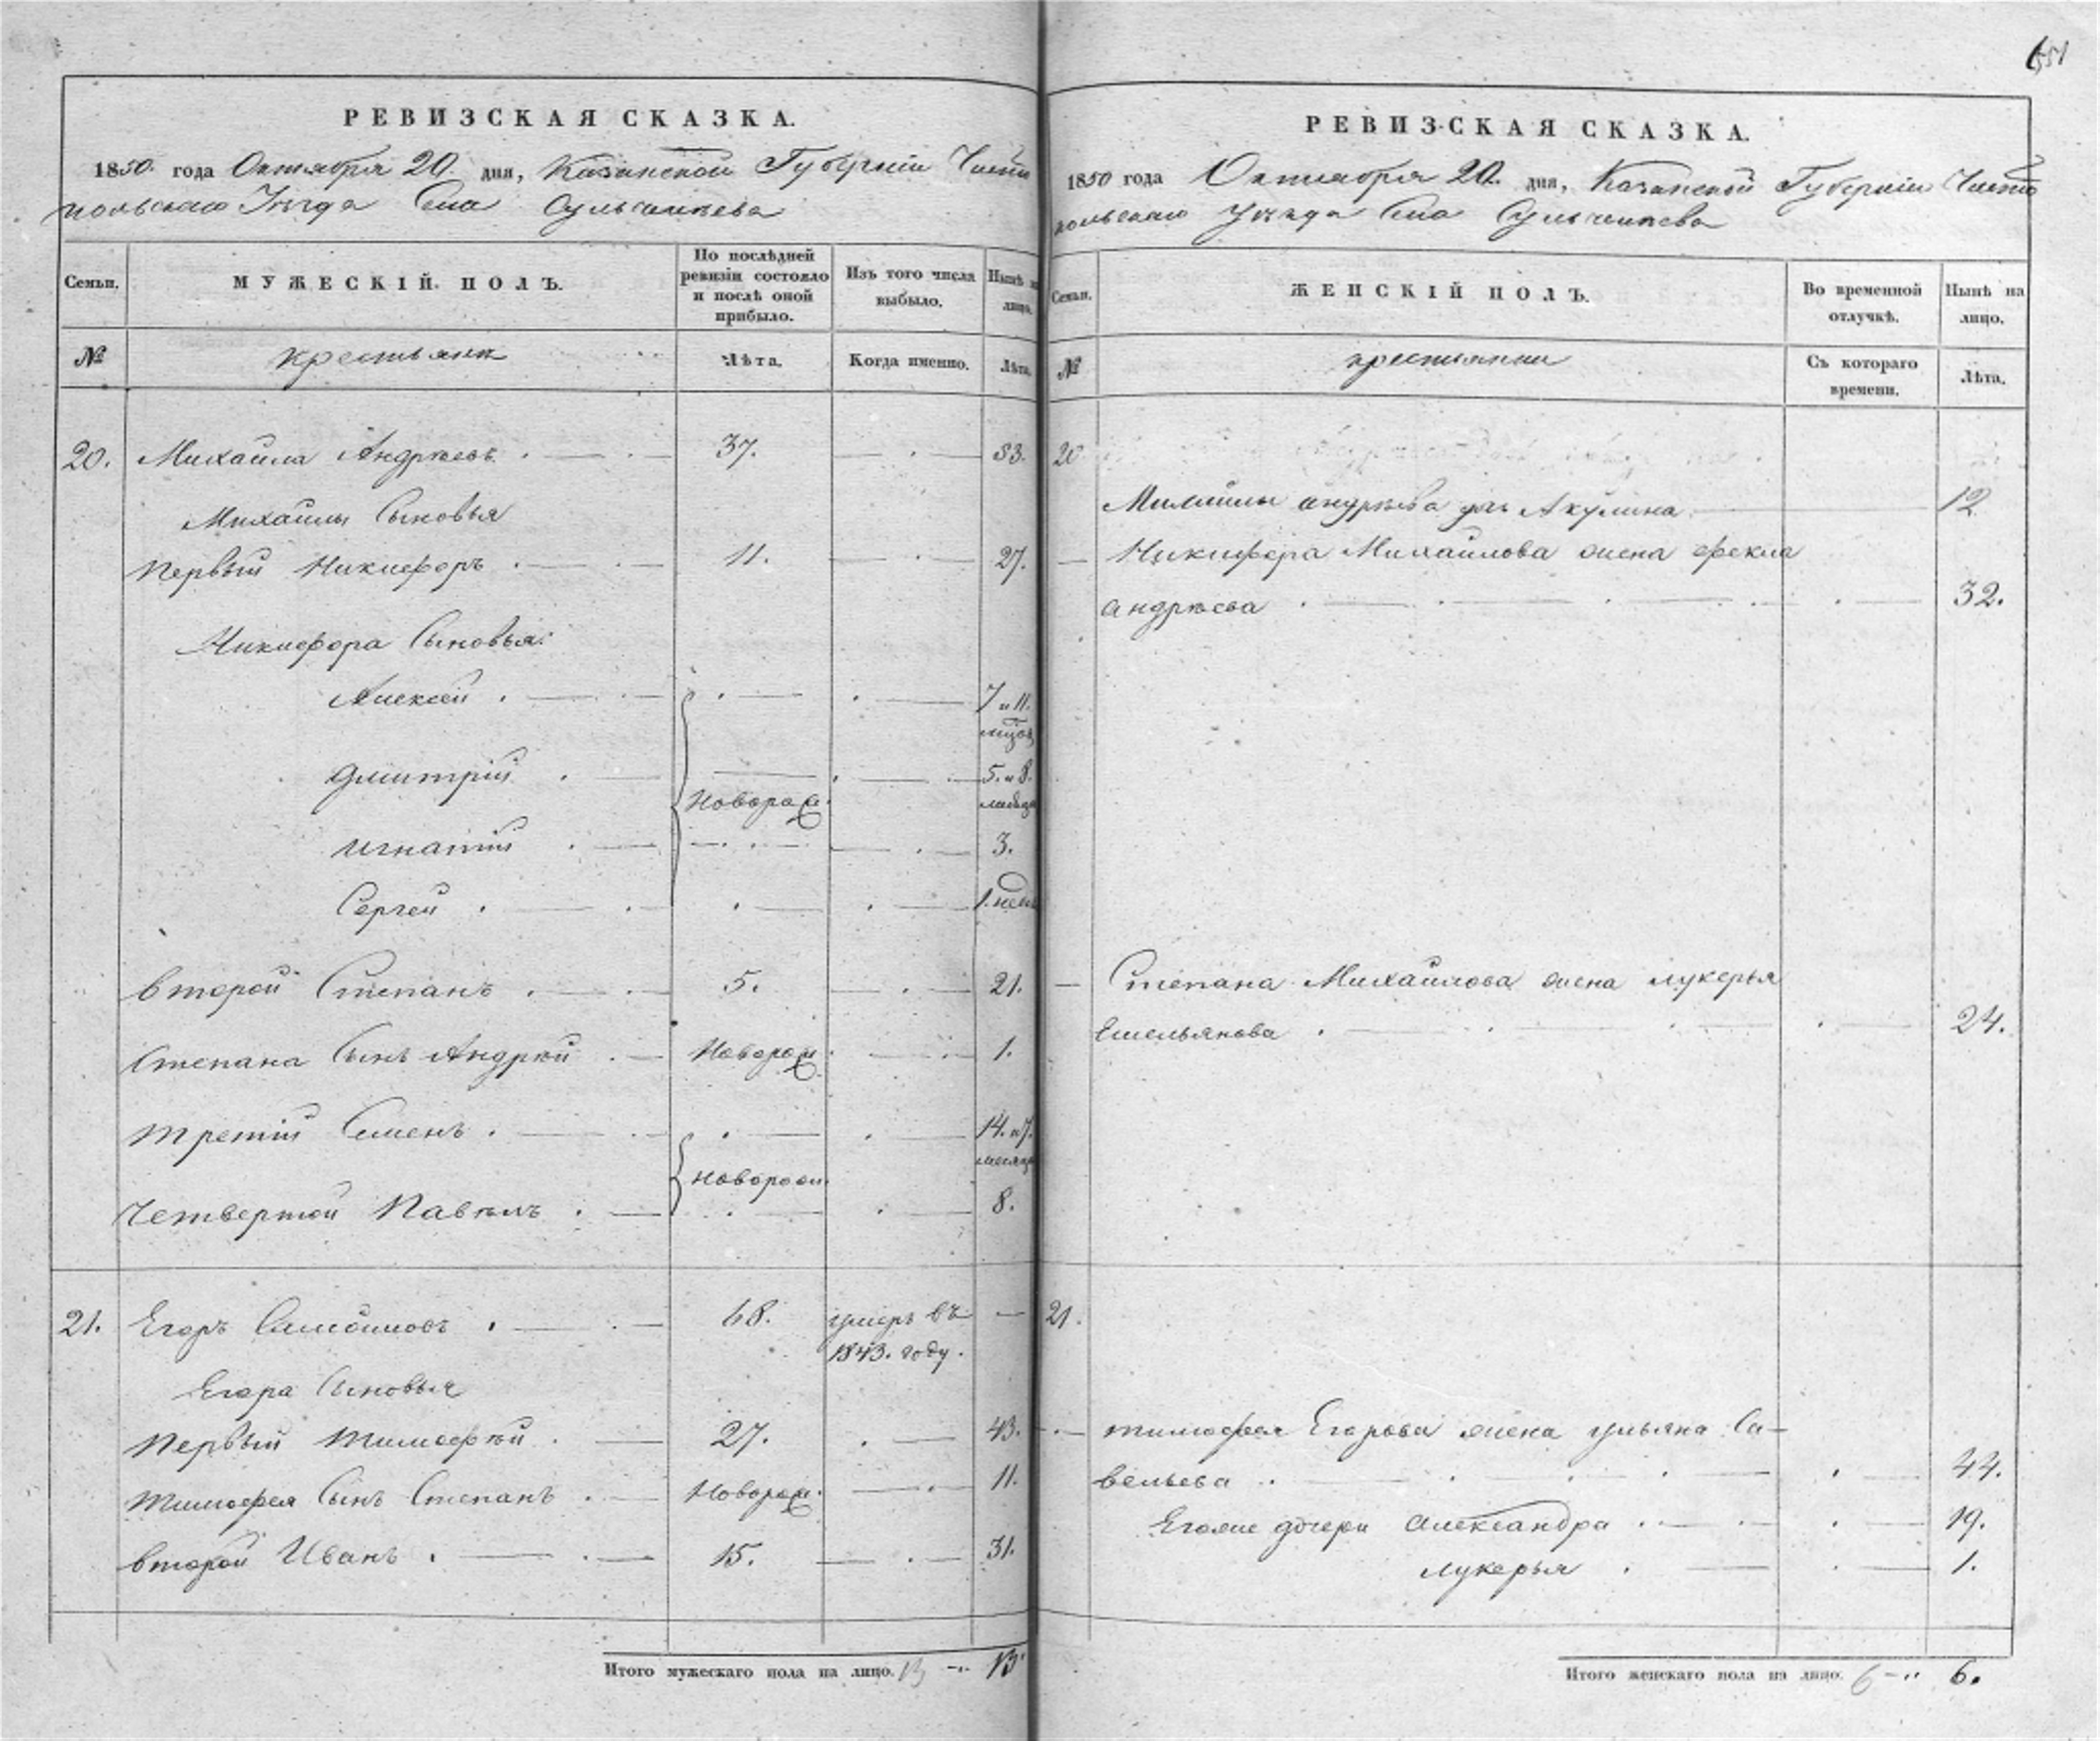 651
РЕВИЗСКАЯ СКАЗКА.
1850 года Октября 20. дня, Казанской Губерніи Чисто
польскаго Уѣзда Села Сульчинкева
Семьи. МУЖЕСКІЙ ПОЛЪ. По послѣдней ревизіи состояло и послѣ оной прибыло. Изъ того числа выбыло. Нынѣ на лицо.
№ крестьяне Лѣта. Когда именно. Лѣта.
20. Михайла Андрѣевъ 37. 53.
Михайлы Сыновья
Первый Никифоръ 11. 27.
Никифора Сыновья:
Алексей 7 и 11.
мцов
Дмитрій 5. и 8.
Новорож.
Игнатій 3.
Сергей 1. нед
Второй Степанъ 5. 21.
Степана Сынъ Андрѣй Новорож. 1.
Третій Семенъ 14. и 7.
Новорож.
Четвертой Павелъ 8.
21. Егоръ Самойловъ 68. умеръ въ
1843. году.
Егора Сыновья
Первый Тимофѣй 27. 43.
Тимофея Сынъ Степанъ Новорож. 11.
Второй Иванъ 15. 31.
Итого мужескаго пола на лицо. 13 13.
РЕВИЗСКАЯ СКАЗКА.
1850 года Октября 20. дня, Казанской Губерніи Чисто
польскаго Уѣзда Села Сульчинкева
Семьи. ЖЕНСКІЙ ПОЛЪ. Во временной отлучкѣ. Нынѣ на лицо.
№ крестьянки Съ котораго времени. Лѣта.
20
Михайлы андрѣева дчь Акулина 12
Никифора Михайлова жена Фекла
андрѣева 32.
Степана Михайлова жена лукерья
Емельянова 24.
21.
Тимофея Егорова жена ульяна Са-
вельева 44.
Егояже дочери Александра 19.
лукерья 1.
Итого женскаго пола на лицо. 6 6.